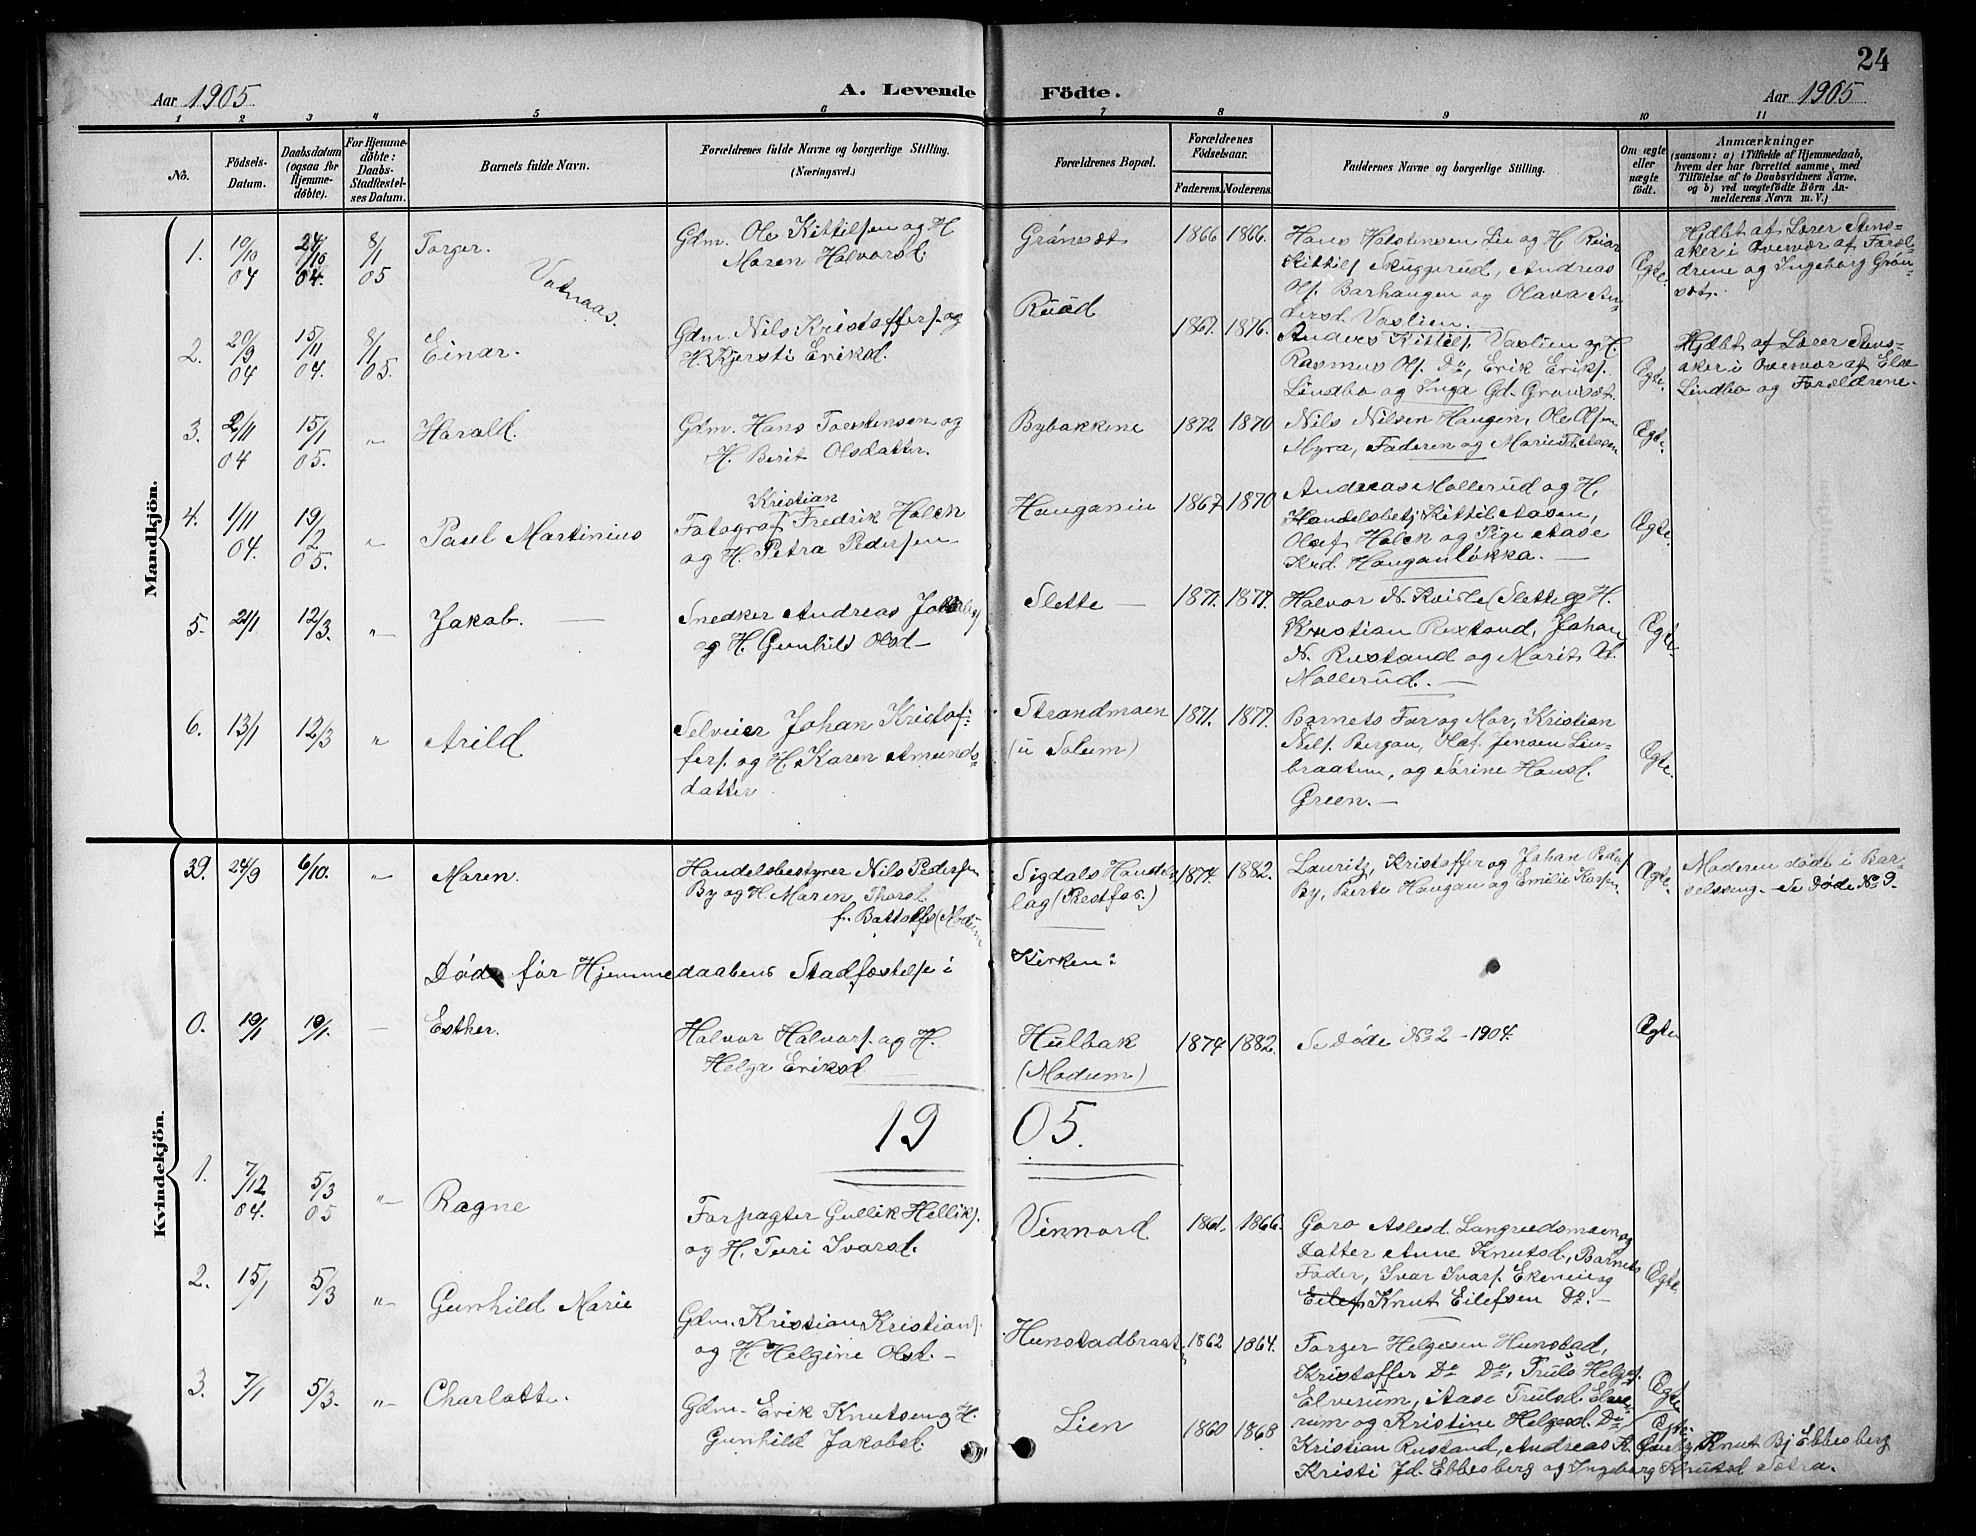 24
Aar 1905. A. Levende Födte. Aar 1905
1 2 3 4 5 6 7 8 9 10 11
No.
Födsels-Datum.
Daabsdatum (ogsaa for Hjemme-döbte).
For Hjemme-döbte: Daabs-Stadfæstel-ses Datum.
Barnets fulde Navn.
Forældrenes fulde Navne og borgerlige Stilling. (Næringsvei.)
Forældrenes Bopæl.
Forældrenes Födselsaar.
Faderens. Moderens.
Faddernes Navne og borgerlige Stilling.
Om ægte eller uægte födt.
Anmærkninger
(saasom: a) i Tilfælde af Hjemmedaab, hvem der har forrettet samme, med Tilföielse af to Daabsvidners Navne. og b) ved uægtefödte Börn An-melderens Navn m. V.)
Mandkjön.
1. 10/10 04 24/10 04. 8/1 05 Torger. Vatnaas.
Gdm. Ole Kittilsen og H.
Maren Halvorsd.
Grønsæt 1866 1866.
Hans Halstensen Lie og H.
Kittils Skuggerud, Andreas
Ols. Barhaugen og Olava An-
dersd. Vaslien.
Ægte.
Hjdbt af Lærer Stens-
aker i Overvær af Foræl-
drene og Ingeborg Grøn-
sæt.
2. 20/9 04 15/11 04. 8/1 05. Einar.
Gdm. Nils Kristoffers. og
H. Kjersti Eriksd.
Ruud 1867. 1876.
Anders Kittils. Vaslien og H.
Rasmus Ols. Do, Erik Eriks.
Lindbo og Inga Gd. Grønsæt.
Ægte.
Hjdbt af Lærer Stens-
aker i Overvær af Else
Lindbo og Forældrene.
3. 2/11 04 15/1 05. " Harald.
Gdm. Hans Torstensen og
H. Berit Olsdatter.
Bybakkene 1872 1870
Nils Nilsen Haugen, Ole Olsen
Myra, Faderen og Marie
Ægte.
4. 1/11 04. 19/2 05. " Paul Martinius
Kristian
Fotograf Fredrik Holck
og H. Petra Pedersen
Haugamin 1867. 1870
Andreas Mollerud og H.
Handelsbetj. Kittil Aasen,
Olaf Holck og Pige Aase
Krd. Hauganløkka.
Ægte.
5. 21/1 12/3. " Jakob.
Snedker Andreas
og H. Gunhild Olsd
Slette 1871. 1877.
Halvor N. Kvisle (Slette og H.
Kristian Rustand, Johan
N. Rustand og Marit
Mollerud.
Ægte.
6. 13/1 12/3 " Arild
Selveier Johan Kristof-
fers. og H. Karen Amunds-
datter
Strandmoen
(i Solum)
1871. 1877.
Barnets Far og Mor, Kristian
Nils. Bergan, Olaf Jensen Lin-
braaten, og Sørine Hansd.
Green.
Ægte.
Kvindekjön.
39. 24/9 6/10. " Maren.
Handelsbestyrer Nils Pedersen
By og H. Maren Thorsd.
f. Battolfs (Modum
Sigdals Handels-
lag (Prestfos.)
1874. 1882.
Lauritz, Kristoffer og Johan Peders.
By, Berte Haugan og Emilie
Ægte.
Moderen døde i Bar-
selsseng. Se Døde No 9.
Døde før Hjemmedaabens Stadfæstelse i Kirken:
0. 19/1 19/1. Esther.
Halvor Halvors. og H.
Helga Eriksd
Hulbak
(Modum)
1874 1882.
Se Døde No 2 - 1904.
Ægte
19 05.
1. 7/12 04. 5/3 05 " Ragne
Forpagter Gullik Helliks.
og H. Turi Ivarsd.
Vinnord 1861. 1866.
Goro Aslesd. Langrudsmoen og
Datter Anne Knutsd, Barnets
Fader, Ivar Ivars. Ekeneie og
Eilef Knut Eilefsen Do.
Ægte
2. 15/1 5/3 " Gunhild Marie
Gdm. Kristian Kristians.
og H. Helgine Olsd.
Hunstadbraat 1862 1864.
Torger Helgesen Hunstad,
Kristoffer Do Do, Truls Helges.
Elverum, Aase Trulsd. Elve-
rum og Kristine Helgesd. Do
Ægte
3. 7/1 5/3. " Charlotte.
Gdm. Erik Knutsen og H.
Gunhild Jakobsd.
Lien 1860 1868
Ægte.
Kristian Rustand, Andreas K. Knut Bj. Ebbesberg
Kristi Jd. Ebbesberg og Ingeborg Knutsd Sætra.